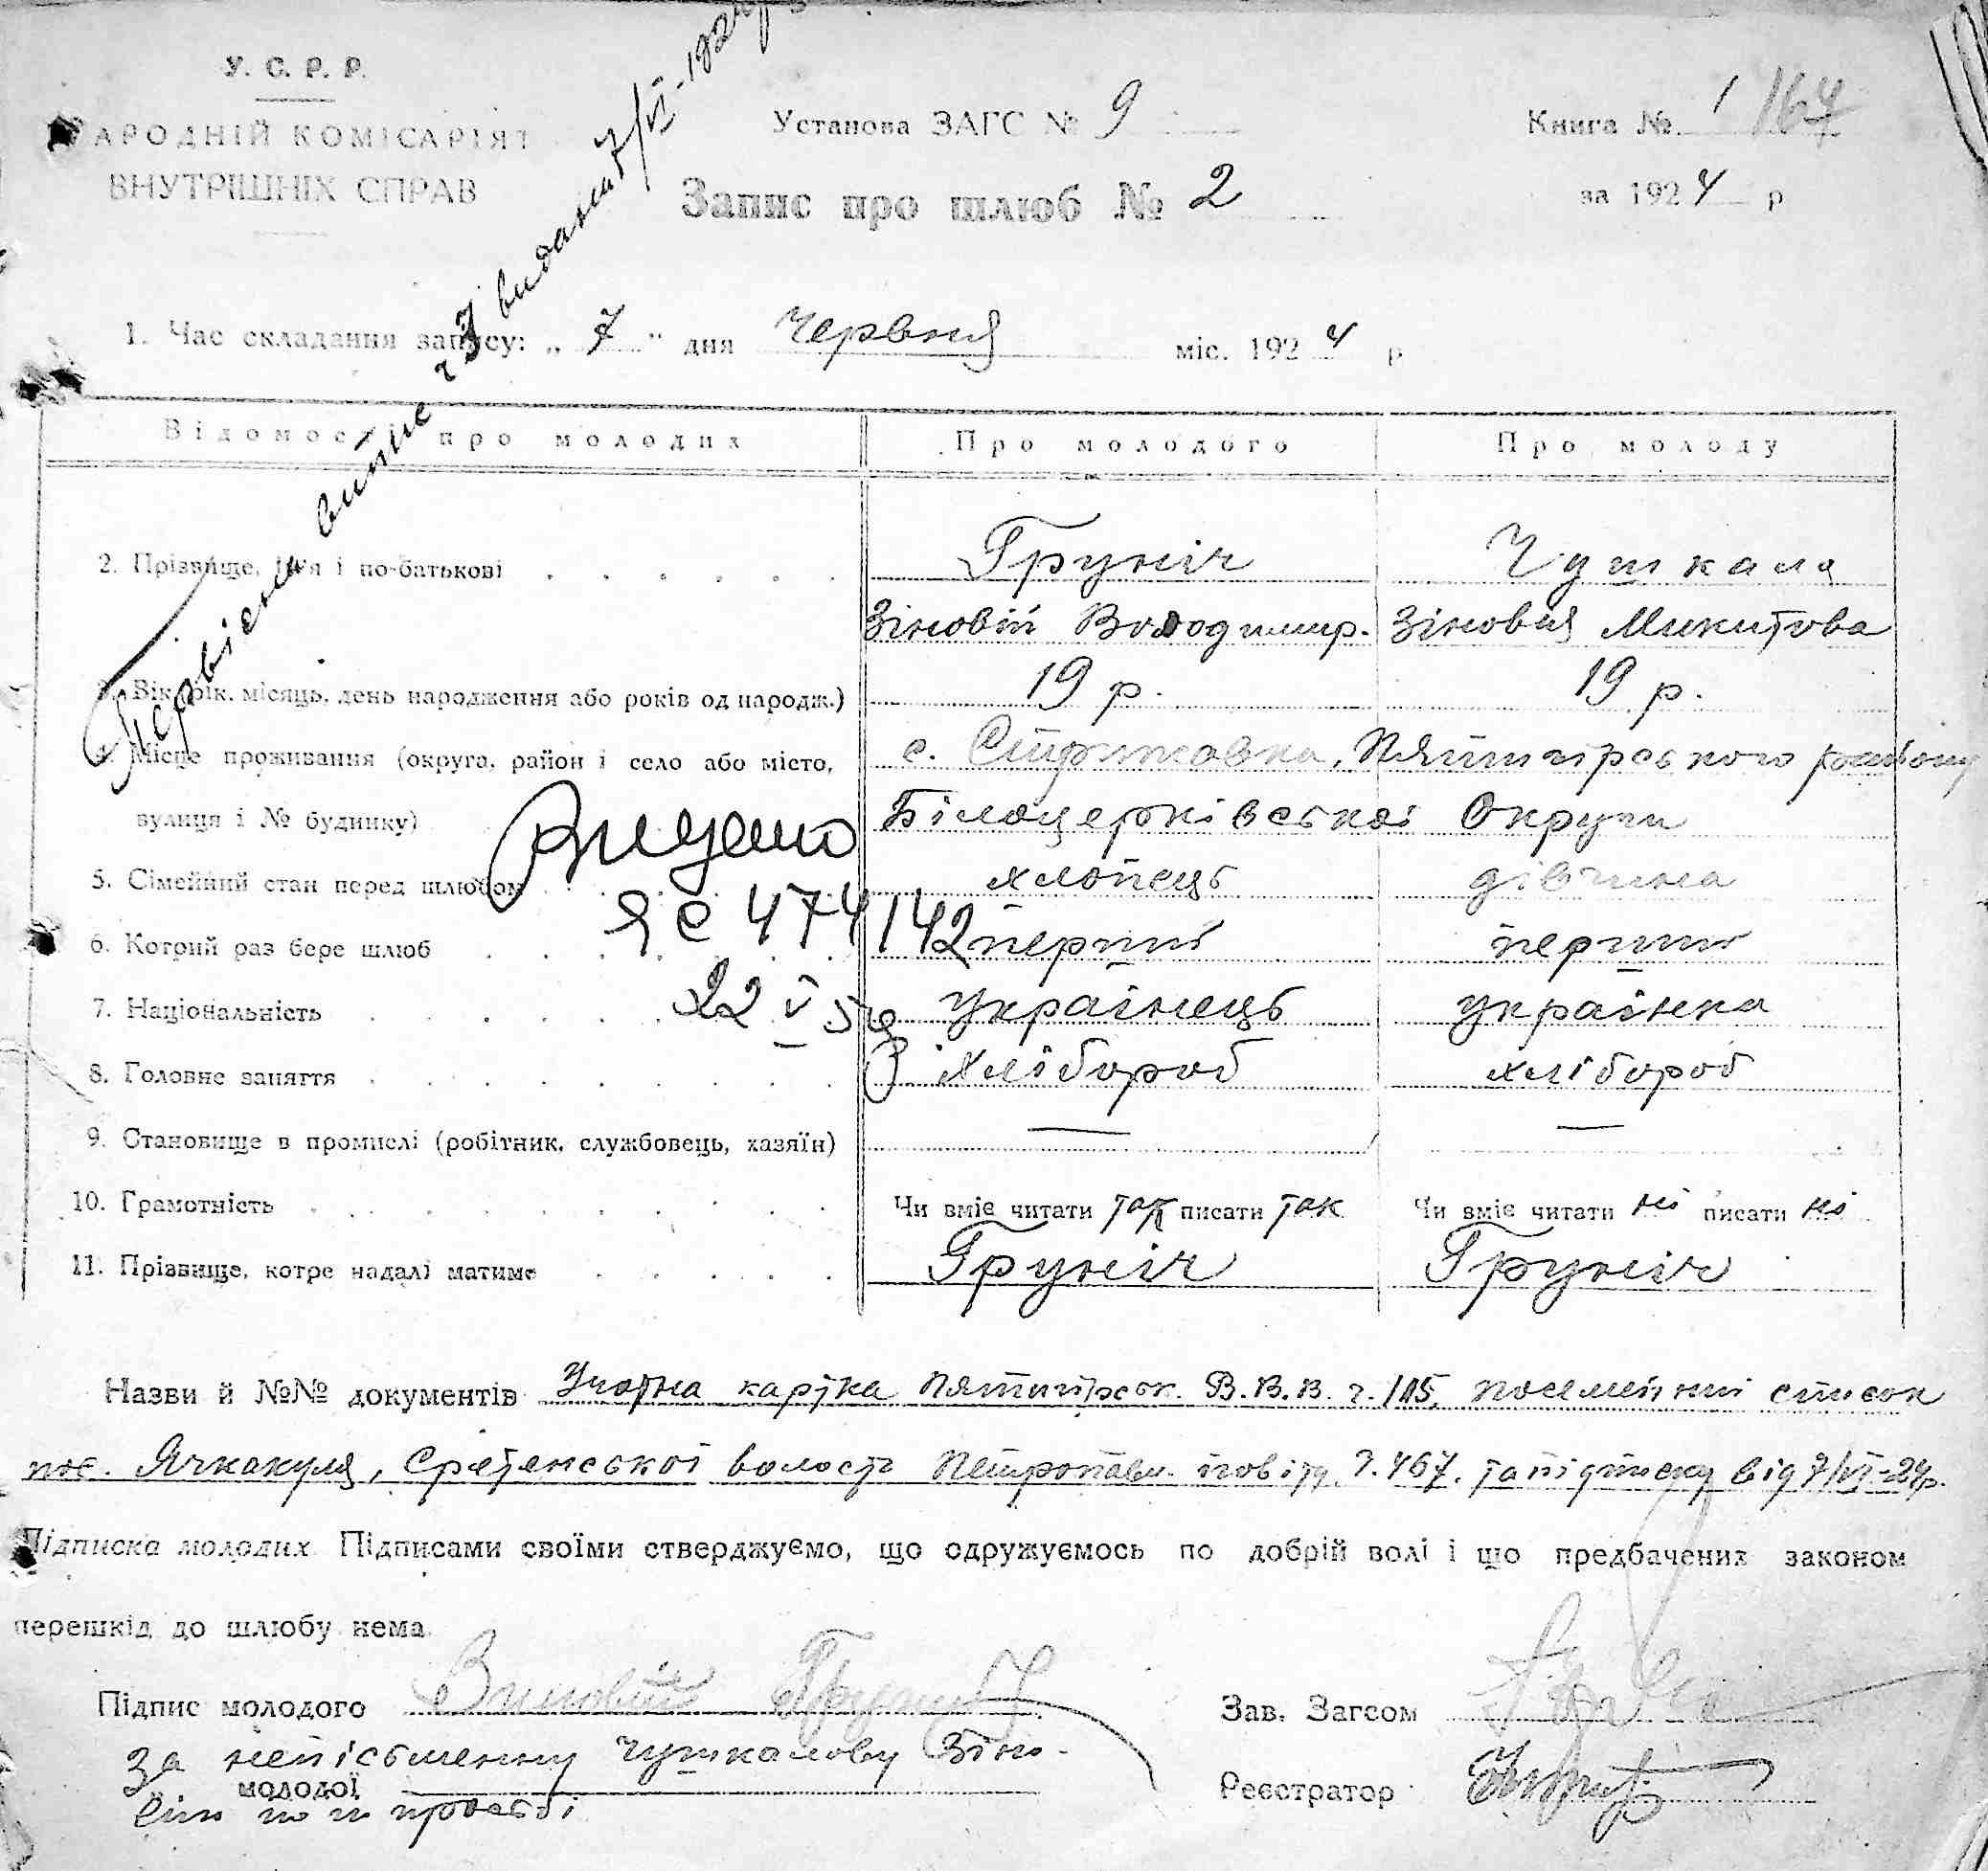 У. С. Р. Р.
НАРОДНІЙ КОМІСАРІЯТ
ВНУТРІШНІХ СПРАВ
Установа ЗАГС № 9
Книга № 1 167
Запис про шлюб № 2
за 1924 р
Первісний витяг ч 7 видані 7/VI-1924 р
1. Час складання запису: „ 7 “ дня Червня міс. 1924 р
Відомості про молодих Про молодого Про молоду
2. Прізвище, ім'я і по-батькові Груніч Чушкала
Зіновій Володимир. Зіновія Микитова
3. Вік (рік, місяць, день народження або років од народж.) 19 р. 19 р.
4. Місце проживання (округа, район і село або місто, с. Стрижавка, Пятигірського району
вулиця і № будинку) Білоцерківської Округи
Видано
5. Сімейний стан перед шлюбом хлопець дівчина
ЯС 474142
6. Котрий раз бере шлюб перший перший
22 V 54
7. Національність Українець українка
8. Головне заняття хлібороб хлібороб
9. Становище в промислі (робітник, службовець, хазяїн) — —
10. Грамотність Чи вміє читати так писати так Чи вміє читати ні писати ні
11. Прізвище, котре надалі матиме Груніч Груніч
Назви й №№ документів Учотна картка Пятигірськ. В.В.В. ч. 115, посемейний список
пос. Ячкакуля, Сретенської волости Петропавл. повіту ч. 467. та підписку від 7/VI-24р.
Підписка молодих Підписами своїми стверджуємо, що одружуємось по добрій волі і що предбачених законом
перешкід до шлюбу нема
Підпис молодого Зиновій Груніч
Зав. Загсом
За неписьменну Чушкалову Зіно-
молодої
вію по її просьбі
Реєстратор